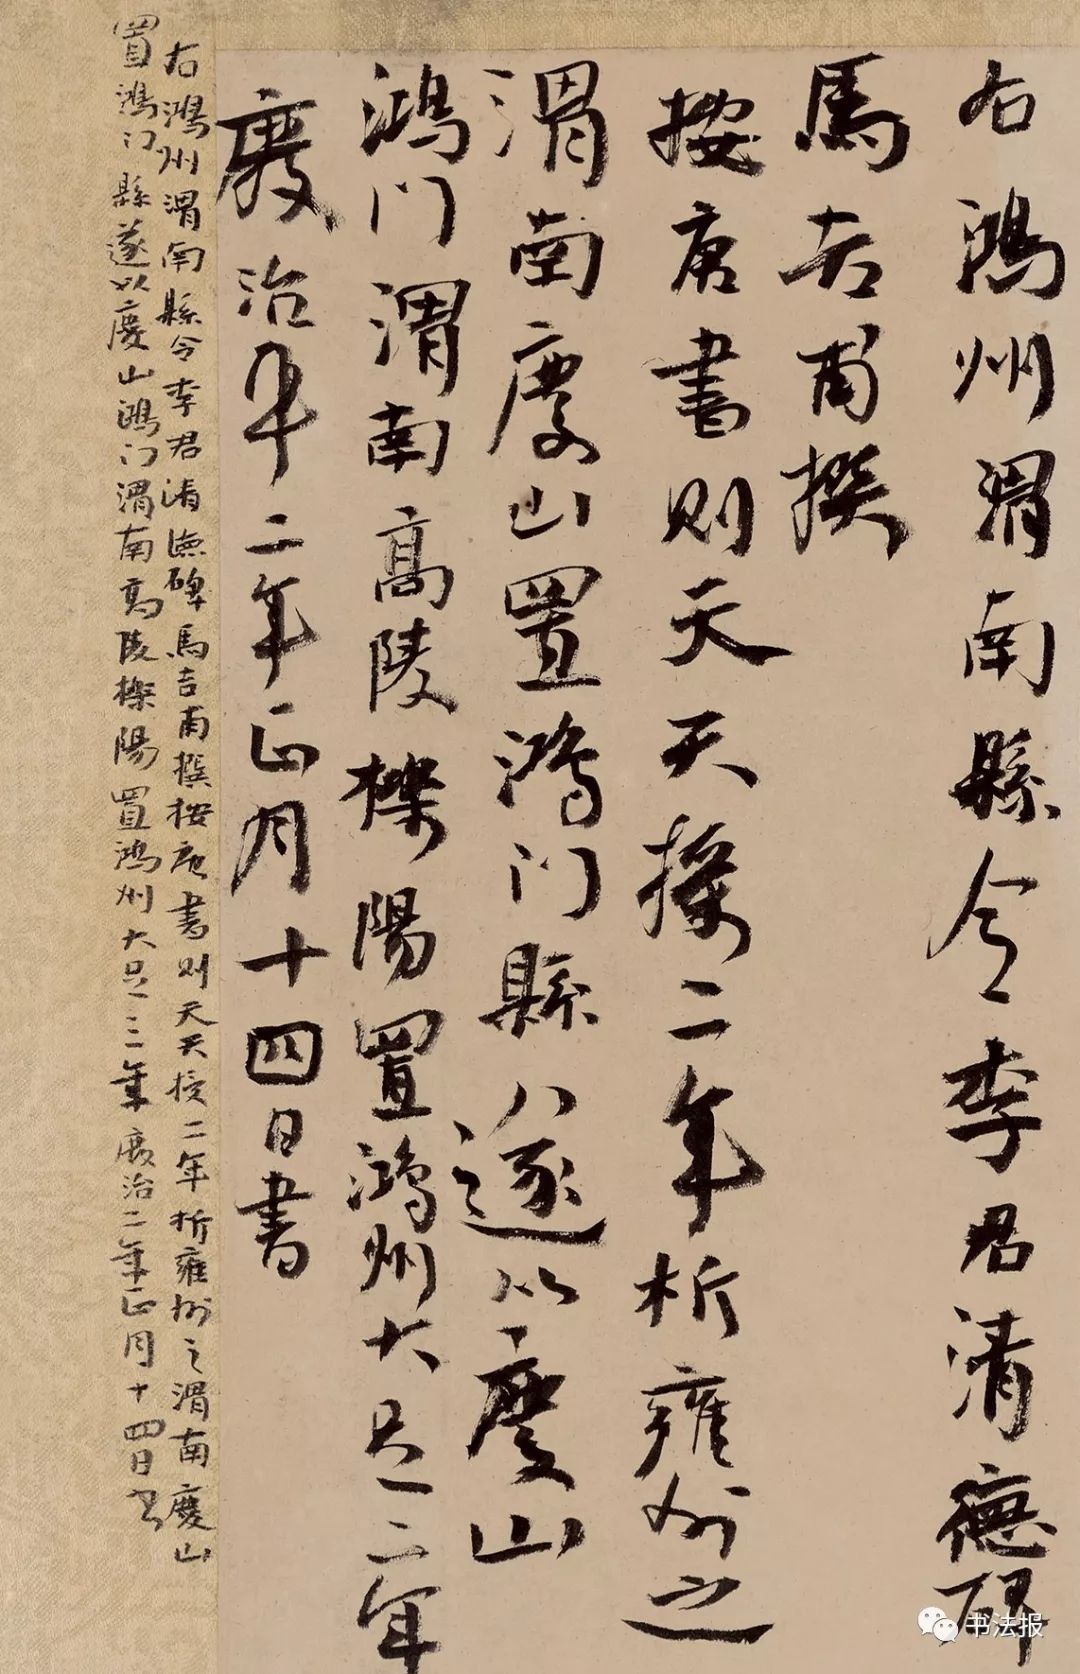 右鴻州渭南縣令李君清德碑
馬吉甫撰
按唐書則天天授二年析雍州之
渭南慶山置鴻門縣八遂之以慶山
鴻門渭南高陵櫟陽置鴻州大足二年
廢治平二年正月十四日書
右鴻州渭南縣令李君清德碑馬吉甫撰按唐書則天天授二年析雍州之渭南慶山
置鴻門縣遂以慶山鴻門渭南高陵櫟陽置鴻州大足二年廢治二年正月十四日書
书法报